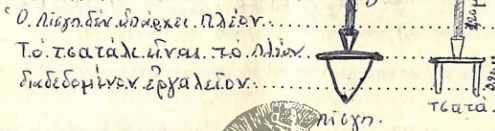 Ὁ λίσγη δὲν ὑπάρχει πλέον
Τὸ τσατάλι εἶναι τὸ πλέον
διαδεδομένον ἐργαλεῖον
λίσγη.
τσατά.